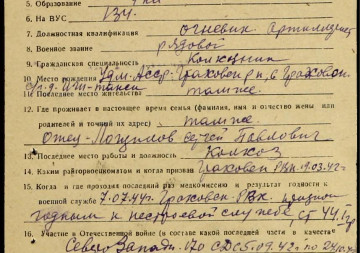 5. Образование
6. На ВУС 134.
7. Должностная квалификация огневик артиллерист
8. Военное звание рядовой
9. Гражданская специальность колхозник
10. Место рождения Удм. АССР. Граховск р-н, в. Граховск.
11. Последнее место жительства там же
12. Где проживает в настоящее время семья (фамилия, имя и отчество жены или
родителей и точный их адрес) там же.
Отец - Сергей Павлович
13. Последнее место работы и должность Колхоз
14. Каким райгорвоенкоматом и когда призван Граховск РВК 9.03.42 г.
15. Когда и где проходил последний раз медкомиссию и результат годности к
военной службе 7.07.44 г. Граховск. РВК. признан
годным к нестроевой службе, ст 44,
16. Участие в Отечественной войне (в составе какой последней части в качестве
Северо Запад. 170 СД с 5.09.42 г по